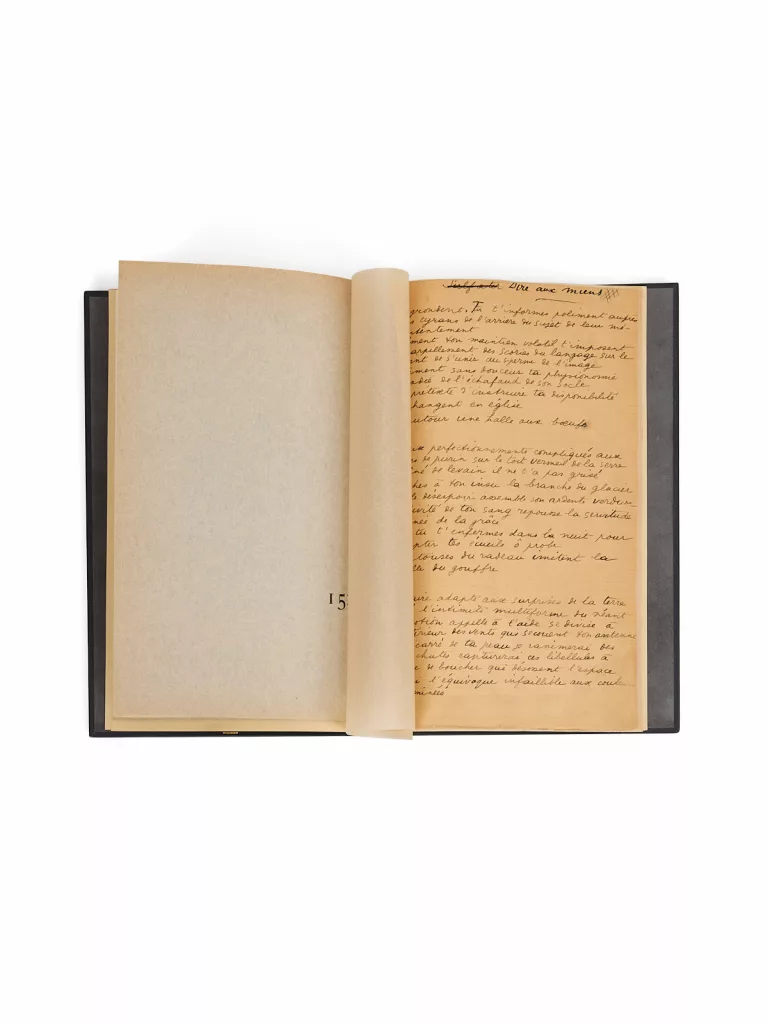 15
Dire aux miens
grondent. Tu t'informes poliment auprès
tyrans de l'arrière du sujet de leur mé-
contentement
ton maintien volatil t'imposent
arpillement des scories du langage sur le
de s'unir au sperme de l'image
ment sans douceur ta physionomie
de l'échafaud de son socle
prétexte d'instruire ta disponibilité
changent en église
autour une halle aux bœufs
ux perfectionnements compliqués aux
de purin sur le toit vermeil de la serre
né de levain il ne t'a pas grisé
hes à ton insu la branche du glacier
désespoirs assemble son ardente
vité de ton sang repousse la servitude
née de la grâce
tu t'enfermes dans la nuit pour
pter tes cueils à
louses du radeau imitent la
du gouffre
ire adapté aux surprises de la terre
l'intimité multiforme du néant
otion appelle à l'aide se divise à
térieur des vents qui secouent ton antenne
carré de ta peau se ranimeras des
chutes captureras ces libellules à
de boucher qui désossent l'espace
l'équivoque infaillible aux coule
minées